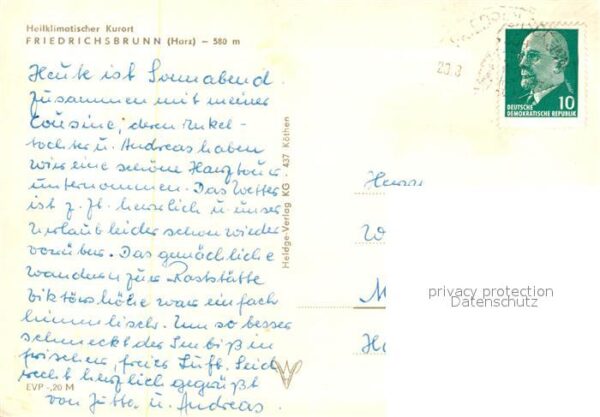 Heilklimatischer Kurort
FRIEDRICHSBRUNN (Harz) – 580 m
Heute ist Sonnabend
zusammen mit meiner
Cousine, deren Enkel-
tochter u. Andreas haben
wir eine schöne Harztour
unternommen. Das Wetter
ist z. Zt. herrlich u. unser
Urlaub leider schon wieder
vorüber. Das gemächliche
wandern zur Raststätte
Viktorshöhe war einfach
himmlisch. Um so besser
schmeckt der Imbiß in
frischer, freier Luft. Seid
recht herzlich gegrüßt
von Jutta u. Andreas.
EVP -,20 M
Heldge-Verlag KG · 437 Köthen
20.8
DEUTSCHE
DEMOKRATISCHE REPUBLIK
10
Herrn
W
M
Ha
privacy protection
Datenschutz